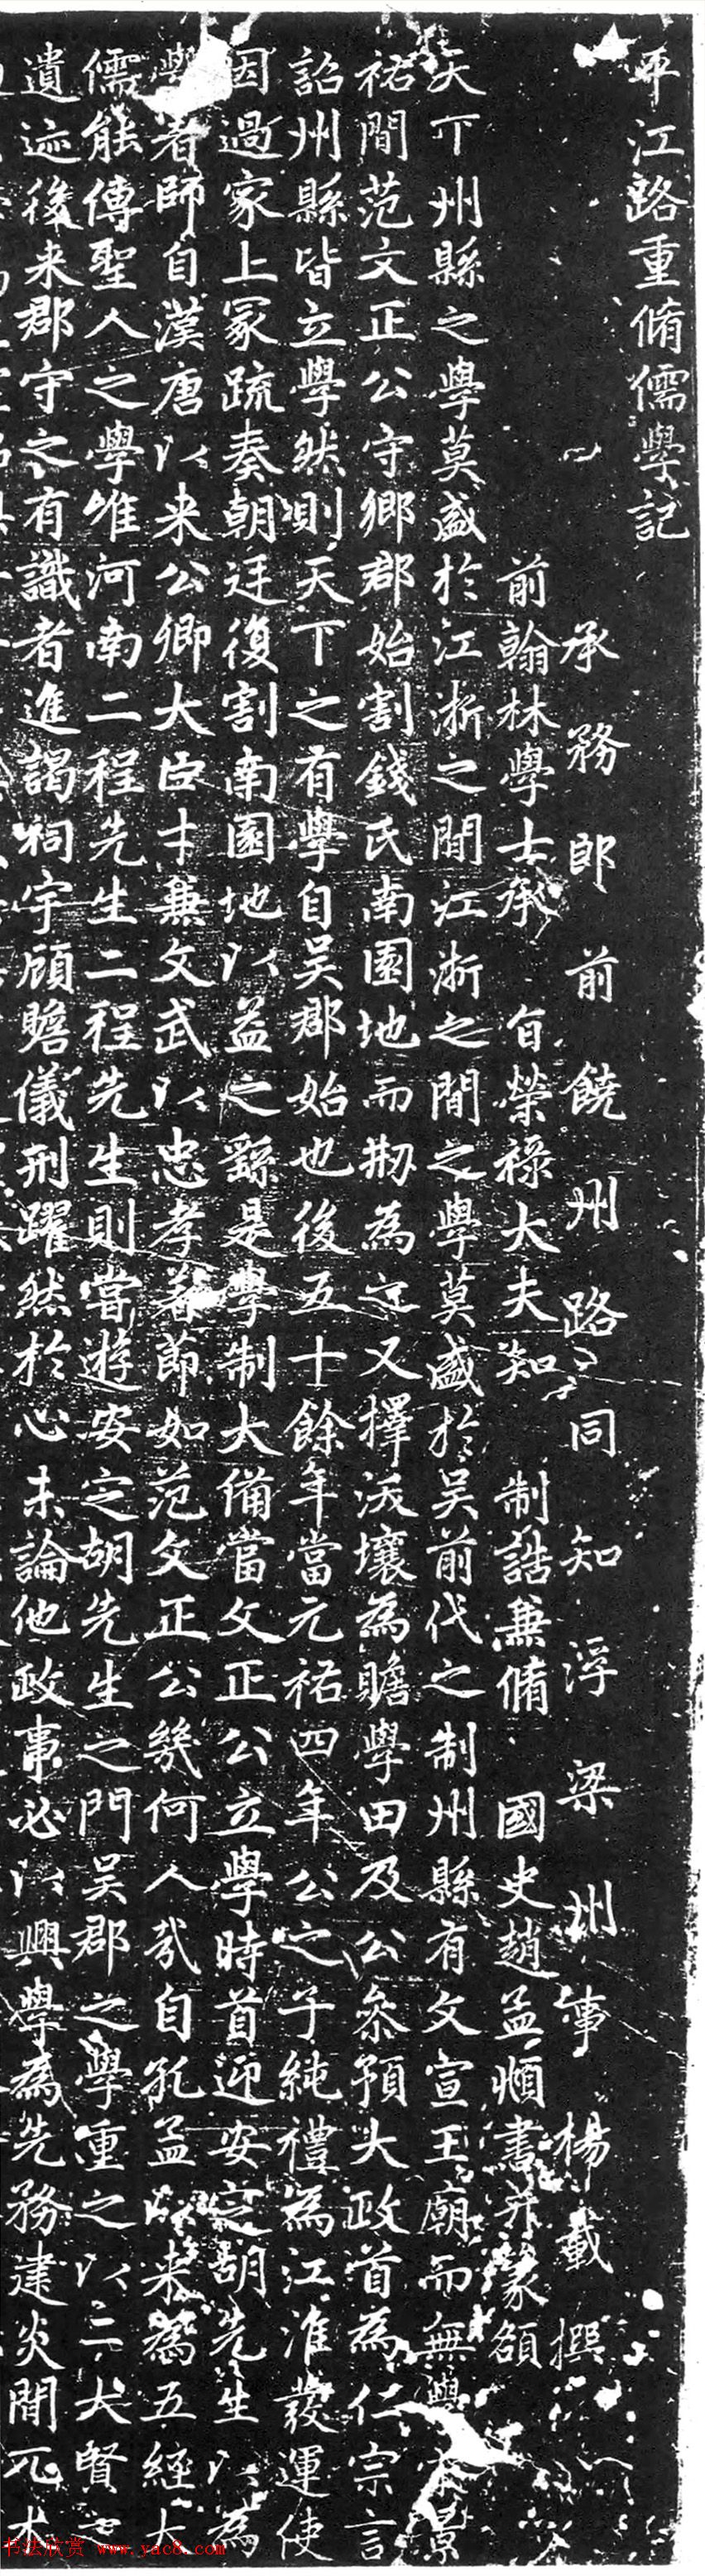 平江路重脩儒學記
承務郎前饒州路同知浮梁州事楊載撰
前翰林學士承旨榮祿大夫知制誥兼脩國史趙孟頫書并篆額
天下州縣之學莫盛於江浙之間江浙之間之學莫盛於吳前代之制州縣有文宣王廟而無學宋景
祐間范文正公守鄉郡始割錢氏南園地而刱為之又擇沃壤為贍學田及公叅預大政首為仁宗言
詔州縣皆立學然則天下之有學自吳郡始也後五十餘年當元祐四年公之子純禮為江淮發運使
因過家上冢疏奏朝廷復割南園地以益之繇是學制大備當文正公立學時首迎安定胡先生以為
學者師自漢唐以来公卿大臣才兼文武以忠孝著節如范文正公幾何人哉自孔孟以来為五經大
儒能傳聖人之學惟河南二程先生二程先生則嘗遊安定胡先生之門吳郡之學重之以二大賢之
遺迹後来郡守之有識者進謁祠宇顧瞻儀刑躍然於心未論他政事必以興學為先務建炎間兀朮
书法欣赏 www.yac8.com